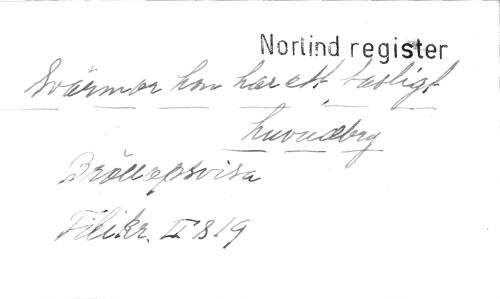 Norlind register
Svärmor hon har ett fasligt
huvudbry
Bröllopsvisa
Filikr. II B 19